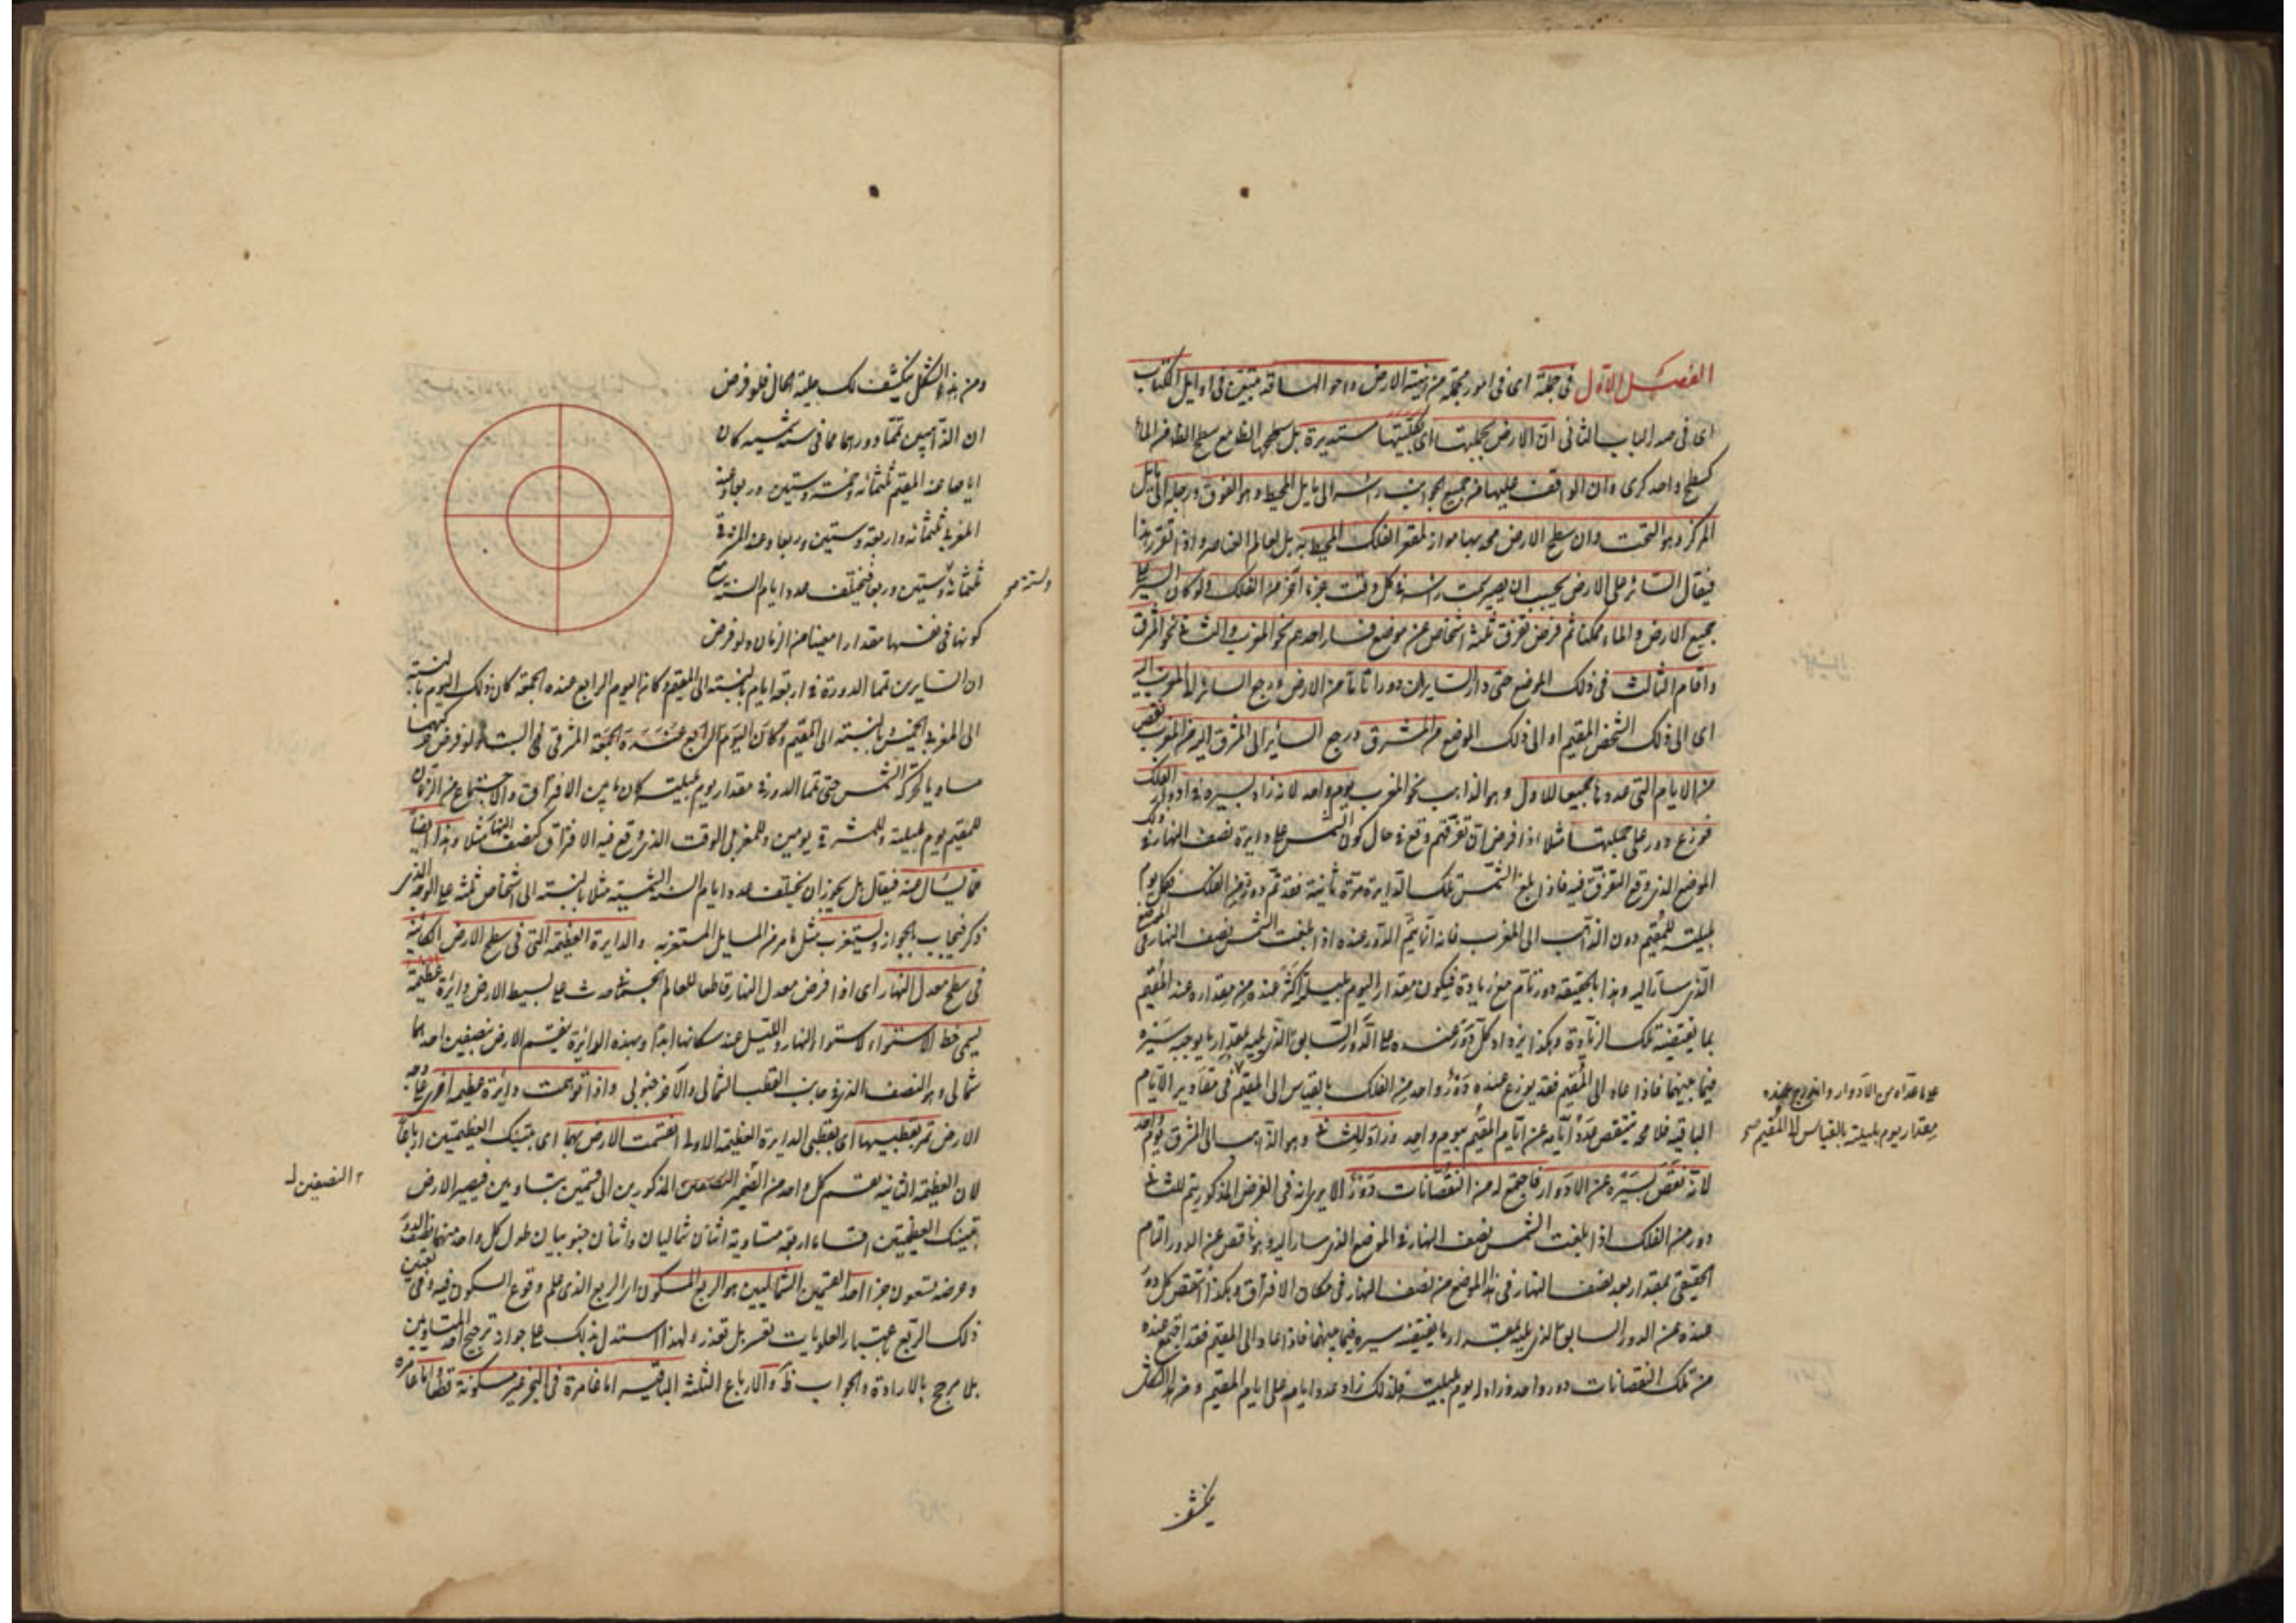 الفصل الاول فى جملة اى فى امور مجملة من هيئة الارض واحوالها قد تبين فى اوايل الكتاب
اى فى صدر الباب الثانى ان الارض بجملتها اى بكليتها مستديرة بل سطحها الظ مع سطح الظ من الماء
كسطح واحد كرى وان الواقف عليها من جميع الجوانب راسه الى ما يلى المحيط وهو الفوق ورجله الى ما يلى
المركز وهو التحت وان سطح الارض محدبها مواز لمقعر الفلك المحيط به بل لعالم العناصر واذا تقرر هذا
فيقال السائر على الارض يجب ان يصير سمت راسه فى كل وقت جزءا آخر من الفلك ولو كان السير على
جميع الارض والماء ممكنا ثم فرض تفرق ثلثة اشخاص عن موضع فسار احدهم نحو المغرب والثانى نحو المشرق
واقام الثالث فى ذلك الموضع حتى دار السايران دورا تاما من الارض ورجع السائر الى المغرب اليه
اى الى ذلك الشخص المقيم او الى ذلك الموضع من المشرق ورجع السائر الى المشرق اليه من المغرب نقص
من الايام التى عدوها جميعا للاول وهو الذاهب نحو المغرب يوم واحد لانه زاد بسيره فى ادوار الفلك
فوزع دور على جملتها مثلا اذا فرض ان تفرقهم وقع فى حال كون الشمس على دايرة نصف النهار فى ذلك
الموضع الذى وقع التفرق فيه فاذا بلغ الشمس تلك الدايرة مرة ثانية فقد تم دورة من الفلك فكل يوم
بليلته للمقيم دون الذاهب الى المغرب فانه انما يتم الدور عنده اذا بلغت الشمس نصف النهار فى الموضع
الذى سار اليه وهذا بالحقيقة دور تام مع زيادة فيكون مقدار اليوم بليلته اكثر عنده من مقداره عند المقيم
بما يقتضيه تلك الزيادة وهكذا يزداد كل دور عنده على الدور السابق الذى يليه بمقدار ما يوجبه سيره
فيما بينهما فاذا عاد الى المقيم فقد يوزع عنده دور واحد من الفلك بالقياس الى المقيم فى مقادير الايام
على ما عداه من الادوار
مقدار يوم بليلته بالقياس الى المقيم صح
الباقية فلا محة ينتقص عدد ايامه عن ايام المقيم بيوم واحد وزاد للثانى وهو الذاهب الى المشرق يوم واحد
لانه نقص بسيره عن الادوار فاجتمع له من النقصانات دور الا يرى انه فى الفرض المذكور يتم للثانى
دور من الفلك اذا بلغت الشمس نصف النهار فى الموضع الذى سار اليه وهو ناقص عن الدور التام
الحقيقى بمقدار بعد نصف النهار فى هذا الموضع من نصف النهار فى مكان الافتراق وهكذا انتقص كل دور
عنده عن الدور السابق الذى يليه بمقدار ما يقتضيه سيره فيما بينهما فاذا عاد الى المقيم فقد اجتمع عنده
من تلك النقصانات دور واحد فزاد له يوم بليلته فلذلك زاد عدد ايامه على ايام المقيم ومن هذا الشكل
ينكشف
ومن هذا الشكل ينكشف لك جلية الحال فلو فرض
ان الذاهبين تمما دورهما معا فى سنة شمسية كان
ايامها عند المقيم ثلثمائة وخمسة وستين وربعا وعند
المغربى ثلثمائة واربعة وستين وربعا وعند المشرقى
ثلثمائة وستة وستين وربعا فيختلف عدد ايام السنة مع
كونها فى نفسها مقدارا معينا من الزمان ولو فرض
ان السايرين تمما الدورة فى اربعة ايام بالنسبة الى المقيم وكان اليوم الرابع عنده الجمعة كان ذلك اليوم بالنسبة
الى المغربى الخميس بالنسبة الى المقيم وكان اليوم الرابع عنده الجمعة المشرقى فى السبت ولو فرض حركتهما
مساويا لحركة الشمس حتى تمما الدورة فى مقدار يوم بليلته كان ما بين الافتراق والاجتماع من الزمان
للمقيم يوم بليلته وللمشرقى يومين وللمغربى الوقت الذى وقع فيه الافتراق كنصف النهار مثلا وهذا ايضا
مما يسأل عنه فيقال هل يجوز ان يختلف عدد ايام السنة الشمسية مثلا بالنسبة الى اشخاص ثلثة على الوجه الذى
ذكر فيجاب بالجواز ويستغرب مثل ما مر من المسايل المستغربة والدايرة العظيمة التى فى سطح الارض الكائنة
فى سطح معدل النهار اى اذا فرض معدل النهار قاطعا للعالم الجسمانى حدث على بسيط الارض دائرة عظيمة
يسمى خط الاستواء لاستواء النهار والليل عند سكانها ابدا وبهذه الدائرة ينقسم الارض بنصفين احدهما
شمالى وهو النصف الذى فى جانب القطب الشمالى والآخر جنوبى واذا توهمت دايرة عظيمة اخرى على وجه
الارض تمر بقطبيها اى بقطبى الدايرة العظيمة الاولى انقسمت الارض بهما اى بتينك العظيمتين ارباعا
لان العظيمة الثانية تقسم كل واحد من المذكورين الى قسمين متساويين فيصير الارض
النصفين
بتينك العظيمتين اقساما اربعة متساوية اثنان شماليان واثنان جنوبيان طول كل واحد منهما نصف الدور
وعرضه تسعون جزءا احد القسمين الشماليين هو الربع المسكون اى الربع الذى علم وقوع السكون فيه وفى تعيين
ذلك الربع باعتبار العلويات تعسر بل تعذر ولهذا استدل بذلك على جواز ترجيح احد المتساويين
بلا مرجح بالارادة والجواب ظ والارباع الثلثة الباقية اما غامرة فى البحر غير مسكونة قطعا واما عامرة